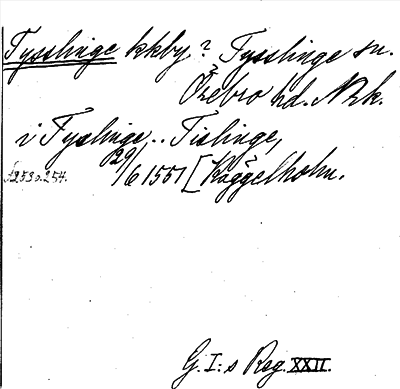 Tysslinge kkby? Tysslinge sn.
Örebro hd. Nrk.
i Tyslinge.. Tislinge,
s. 253 o. 254. 29/6 1551 [Käggelholm.
G. I:s Reg. XXII.